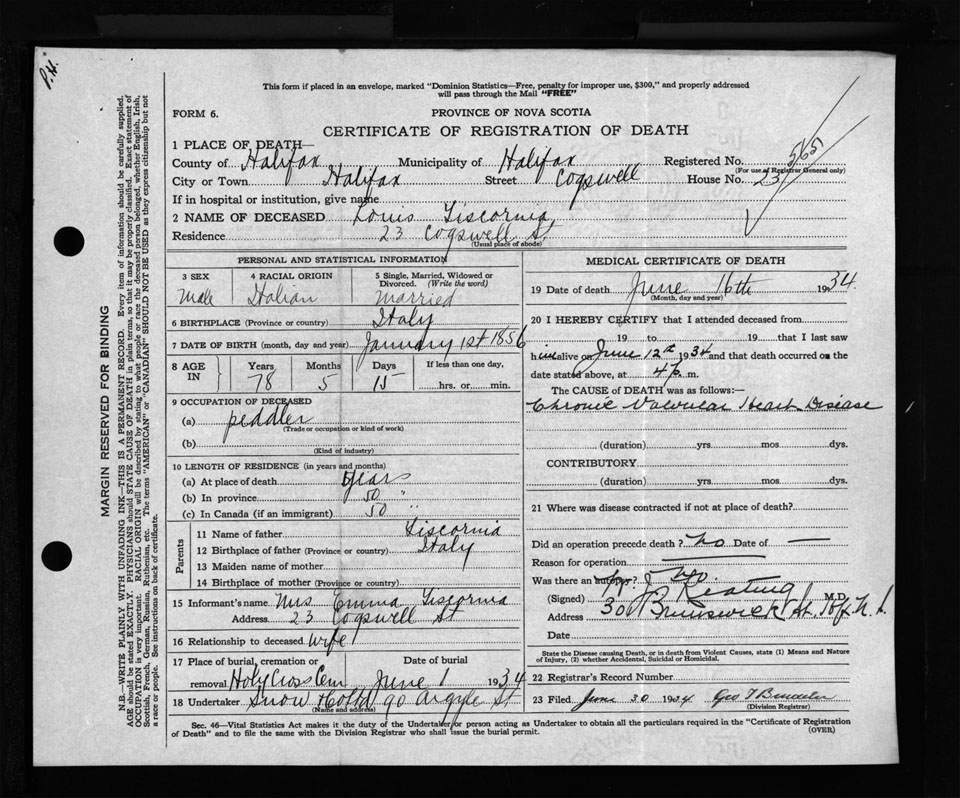 P.H.
This form if placed in an envelope, marked "Dominion Statistics—Free, penalty for improper use, $300," and properly addressed
will pass through the Mail "FREE"
FORM 6.
PROVINCE OF NOVA SCOTIA
CERTIFICATE OF REGISTRATION OF DEATH
1 PLACE OF DEATH—
County of Halifax Municipality of Halifax Registered No. 565
(For use of Registrar General only)
City or Town Halifax Street Cogswell House No. 23
If in hospital or institution, give name
2 NAME OF DECEASED Louis Liscornia
Residence 23 Cogswell St.
(Usual place of abode)
PERSONAL AND STATISTICAL INFORMATION
3 SEX Male
4 RACIAL ORIGIN Italian
5 Single, Married, Widowed or Divorced. (Write the word) Married
6 BIRTHPLACE (Province or country) Italy
7 DATE OF BIRTH (month, day and year) January 1st 1856
8 AGE IN Years 78 Months 5 Days 15 If less than one day, hrs. or min.
9 OCCUPATION OF DECEASED
(a) peddler
(Trade or occupation or kind of work)
(b)
(Kind of industry)
10 LENGTH OF RESIDENCE (in years and months)
(a) At place of death years
(b) In province 50 "
(c) In Canada (if an immigrant) 50 "
Parents
11 Name of father Liscornia
12 Birthplace of father (Province or country) Italy
13 Maiden name of mother
14 Birthplace of mother (Province or country)
15 Informant's name Mrs Emma Liscornia
Address 23 Cogswell St
16 Relationship to deceased wife
17 Place of burial, cremation or removal Holy Cross Cem Date of burial June 1 1934
18 Undertaker Snow & Co Ltd 90 Argyle St
(Name and address)
MEDICAL CERTIFICATE OF DEATH
19 Date of death June 16th 1934
(Month, day and year)
20 I HEREBY CERTIFY that I attended deceased from
19 to 19 that I last saw
him alive on June 12th 1934 and that death occurred on the
date stated above, at 4 p. m.
The CAUSE of DEATH was as follows:—
Chronic Valvular Heart Disease
(duration) yrs. mos. dys.
CONTRIBUTORY
(duration) yrs. mos. dys.
21 Where was disease contracted if not at place of death?
Did an operation precede death? No Date of —
Reason for operation
Was there an autopsy? No.
(Signed) J Keating M.D.
Address 300 Brunswick St. Hfx N.S.
Date
State the Disease causing Death, or in death from Violent Causes, state (1) Means and Nature
of Injury, (2) whether Accidental, Suicidal or Homicidal.
22 Registrar's Record Number
23 Filed June 30 1934 Geo
(Division Registrar)
Sec. 46—Vital Statistics Act makes it the duty of the Undertaker or person acting as Undertaker to obtain all the particulars required in the "Certificate of Registration
of Death" and to file the same with the Division Registrar who shall issue the burial permit. (OVER)
MARGIN RESERVED FOR BINDING
N.B.—WRITE PLAINLY WITH UNFADING INK—THIS IS A PERMANENT RECORD. Every item of information should be carefully supplied.
AGE should be stated EXACTLY. PHYSICIANS should STATE CAUSE OF DEATH in plain terms, so that it may be properly classified. Exact statement of
OCCUPATION is very important. RACIAL ORIGIN will be described by stating to what people or race the deceased person belonged, whether English, Irish,
Scottish, French, German, Russian, Ruthenian, etc. The terms "AMERICAN" or "CANADIAN" SHOULD NOT BE USED as they express citizenship but not
a race or people. See instructions on back of certificate.